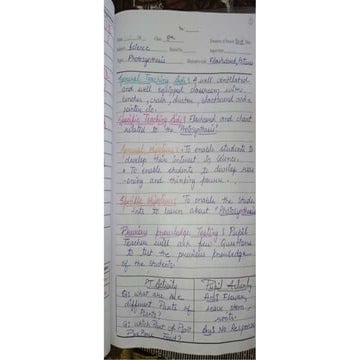 Class
Subject Science
Topic Photosynthesis
Flashcard, Picture
General Teaching Aids: A well ventilated
and well equipped classroom with
chalk, duster, blackboard and a
pointer etc.
Specific Teaching Aids: Flashcard and chart
related to the "Photosynthesis"
General Objectives: To enable students to
develop their interest in science.
To enable students to develop
and thinking power.
Specific Objectives: To enable the
to learn about "Photosynthesis
Previous knowledge Testing: Pupil
Teacher will ask few Questions
to test the previous knowledge
of the students.
P.T Activity Pupil Activity
Q1 What are the Ans1 Flower,
different Parts of leave, stem,
Plants? roots.
Q2 Which Part of Plant Ans No Response
Food?